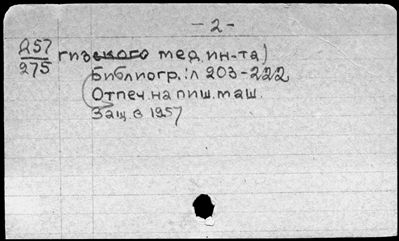 - 2 -
Д57
275
гизского мед. ин-та)
Библиогр.: л 203-222
Отпеч. на пиш. маш.
Защ. в 1957